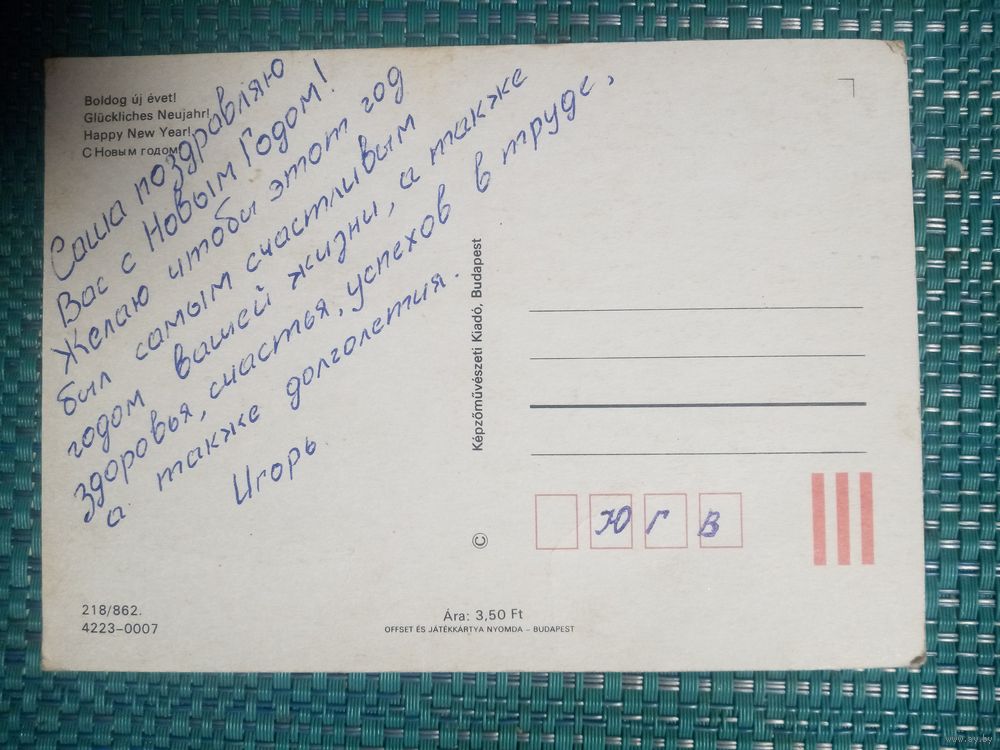 Boldog új évet!
Glückliches Neujahr!
Happy New Year!
С Новым годом!
Саша поздравляю
Вас с Новым Годом!
Желаю чтобы этот год
был самым счастливым
годом вашей жизни, а также
здоровья, счастья, успехов в труде,
а также долголетия.
Игорь
Képzőművészeti Kiadó, Budapest
©
Ю Г В
218/862.
4223–0007
Ára: 3,50 Ft
OFFSET ÉS JÁTÉKKÁRTYA NYOMDA – BUDAPEST
www.ay.by